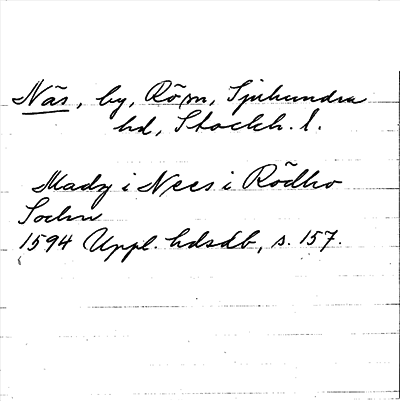 Näs, by, Röm, Sjuhundra
hd, Stockh. l.
Mady i Nees i Rödho
Sochn
1594 Uppl. hdsdb, s. 157.